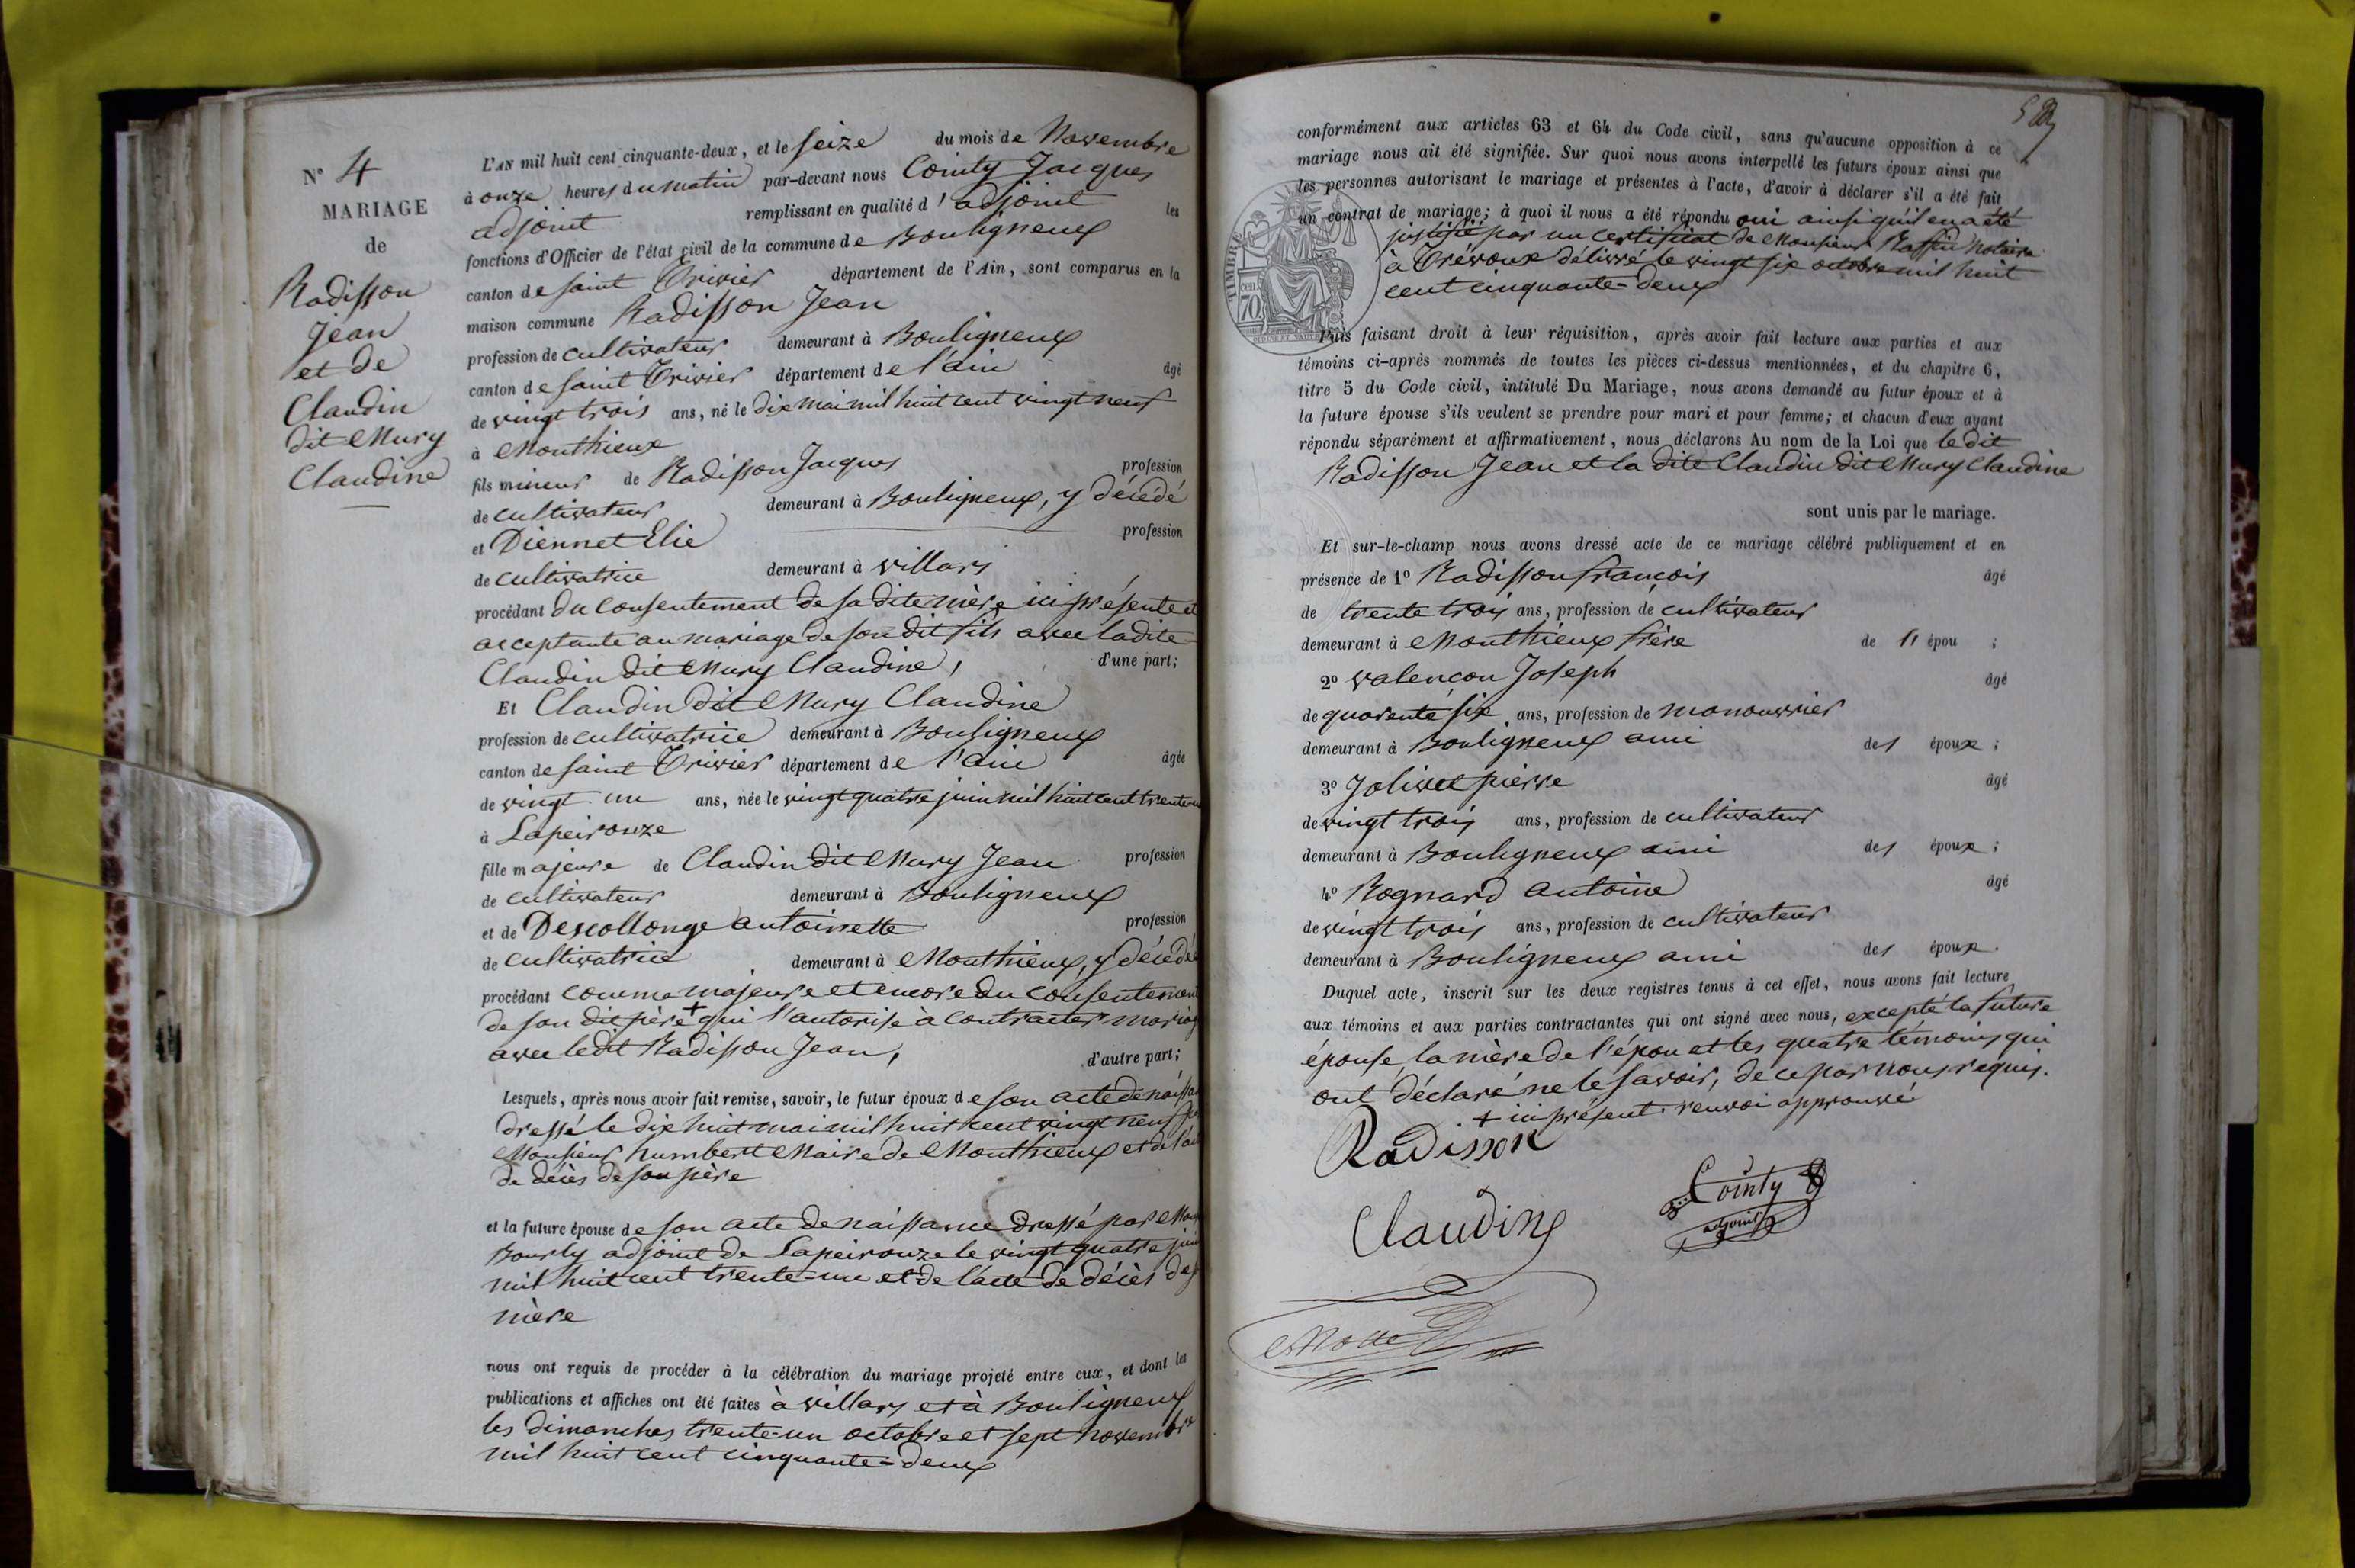 N° 4
MARIAGE
de
Radisson
Jean
et de
Claudin
dit Mury
Claudine
L'AN mil huit cent cinquante-deux, et le seize du mois de Novembre
à onze heures du matin par-devant nous Cointy Jacques
adjoint remplissant en qualité d'adjoint les
fonctions d'Officier de l'état civil de la commune de Bouligneux
canton de saint Trivier département de l'Ain, sont comparus en la
maison commune Radisson Jean
profession de cultivateur demeurant à Bouligneux
canton de saint Trivier département de l'ain âgé
de vingt trois ans, né le dix mai mil huit cent vingt neuf
à Monthieux
fils mineur de Radisson Jacques profession
de cultivateur demeurant à Bouligneux, y décédé
et Diennet Elie profession
de cultivatrice demeurant à villars
procédant du consentement de sa dite mère ici présente et
acceptante au mariage de son dit fils avec ladite
Claudin dit Mury Claudine, d'une part;
Et Claudin dit Mury Claudine
profession de cultivatrice demeurant à Bouligneux
canton de saint Trivier département de l'ain âgée
de vingt un ans, née le vingt quatre juin mil huit cent trente un
à Lapeirouze
fille majeure de Claudin dit Mury Jean profession
de cultivateur demeurant à Bouligneux
et de Descollonge antoinette profession
de cultivatrice demeurant à Monthieux, y décédée
procédant comme majeure et encore du consentement
de son dit père + qui l'autorise à contracter mariage
avec ledit Radisson Jean, d'autre part;
Lesquels, après nous avoir fait remise, savoir, le futur époux de son acte de naissa
dressé le dix huit mai mil huit cent vingt neuf par
Monsieur humbert Maire de Monthieux et de l'ac
de décès de son père
et la future épouse de son acte de naissance dressé par Mons
Bourly adjoint de Lapeirouze le vingt quatre juin
mil huit cent trente-un et de l'acte de décès de s
mère
nous ont requis de procéder à la célébration du mariage projeté entre eux, et dont les
publications et affiches ont été faites à villars et à Bouligneux
les dimanches trente-un octobre et sept novembre
mil huit cent cinquante-deux
conformément aux articles 63 et 64 du Code civil, sans qu'aucune opposition à ce
mariage nous ait été signifiée. Sur quoi nous avons interpellé les futurs époux ainsi que
les personnes autorisant le mariage et présentes à l'acte, d'avoir à déclarer s'il a été fait
un contrat de mariage; à quoi il nous a été répondu oui ainsi qu'il en a été
justifié par un certificat de Monsieur Raffin Notaire
à Trévoux délivré le vingt six octobre mil huit
cent cinquante-deux
TIMBRE
70 cen
Puis faisant droit à leur réquisition, après avoir fait lecture aux parties et aux
témoins ci-après nommés de toutes les pièces ci-dessus mentionnées, et du chapitre 6,
titre 5 du Code civil, intitulé Du Mariage, nous avons demandé au futur époux et à
la future épouse s'ils veulent se prendre pour mari et pour femme; et chacun d'eux ayant
répondu séparément et affirmativement, nous déclarons Au nom de la Loi que le dit
Radisson Jean et la dite Claudin dit Mury Claudine
sont unis par le mariage.
Et sur-le-champ nous avons dressé acte de ce mariage célébré publiquement et en
présence de 1° Radisson françois âgé
de trente trois ans, profession de cultivateur
demeurant à Monthieux frère de l' épou ;
2° valençon Joseph âgé
de quarente six ans, profession de manouvrier
demeurant à Bouligneux ami des époux ;
3° Jolivet pierre âgé
de vingt trois ans, profession de cultivateur
demeurant à Bouligneux ami des époux ;
4° Rognard antoine âgé
de vingt trois ans, profession de cultivateur
demeurant à Bouligneux ami des époux.
Duquel acte, inscrit sur les deux registres tenus à cet effet, nous avons fait lecture
aux témoins et aux parties contractantes qui ont signé avec nous, excepté la future
épouse, la mère de l'épou et les quatre témoins qui
ont déclaré ne le savoir, de ce par nous requis.
+ ici présent. renvoi approuvé
Radisson
Cointy
adjoint
Claudin